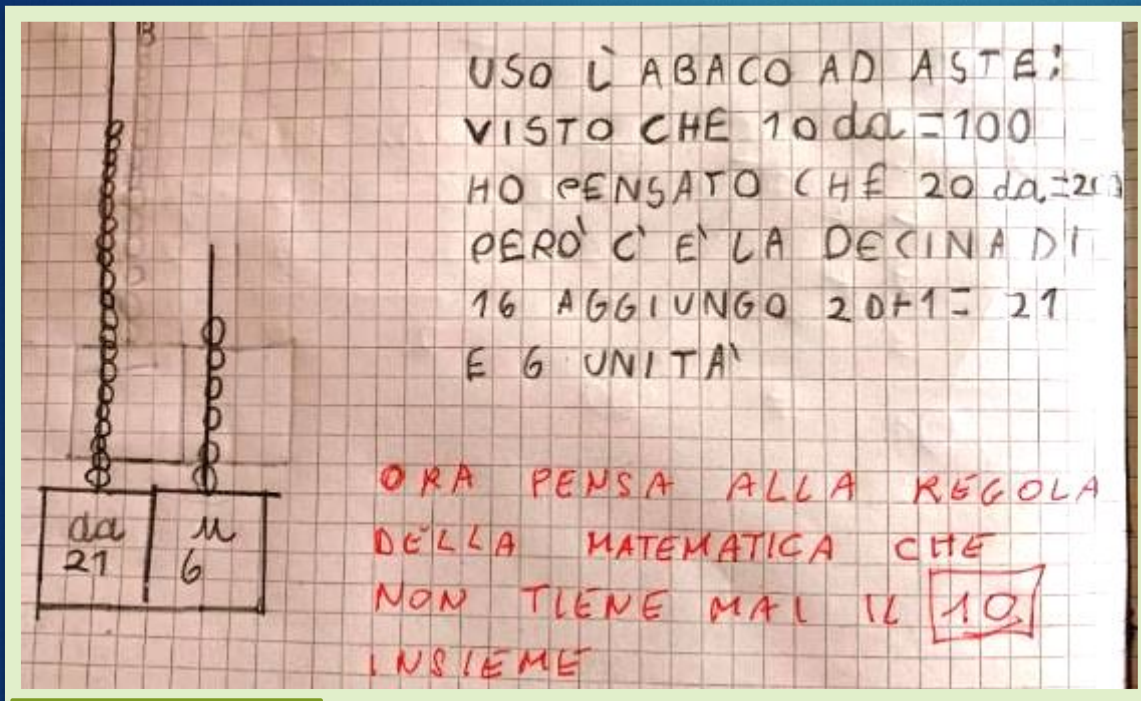 USO L'ABACO AD ASTE:
VISTO CHE 10 da = 100
HO PENSATO CHE 20 da = 200
PERÒ C'È LA DECINA DI
16 AGGIUNGO 20+1 = 21
E 6 UNITÀ
da u
21 6
ORA PENSA ALLA REGOLA
DELLA MATEMATICA CHE
NON TIENE MAI IL 10
INSIEME